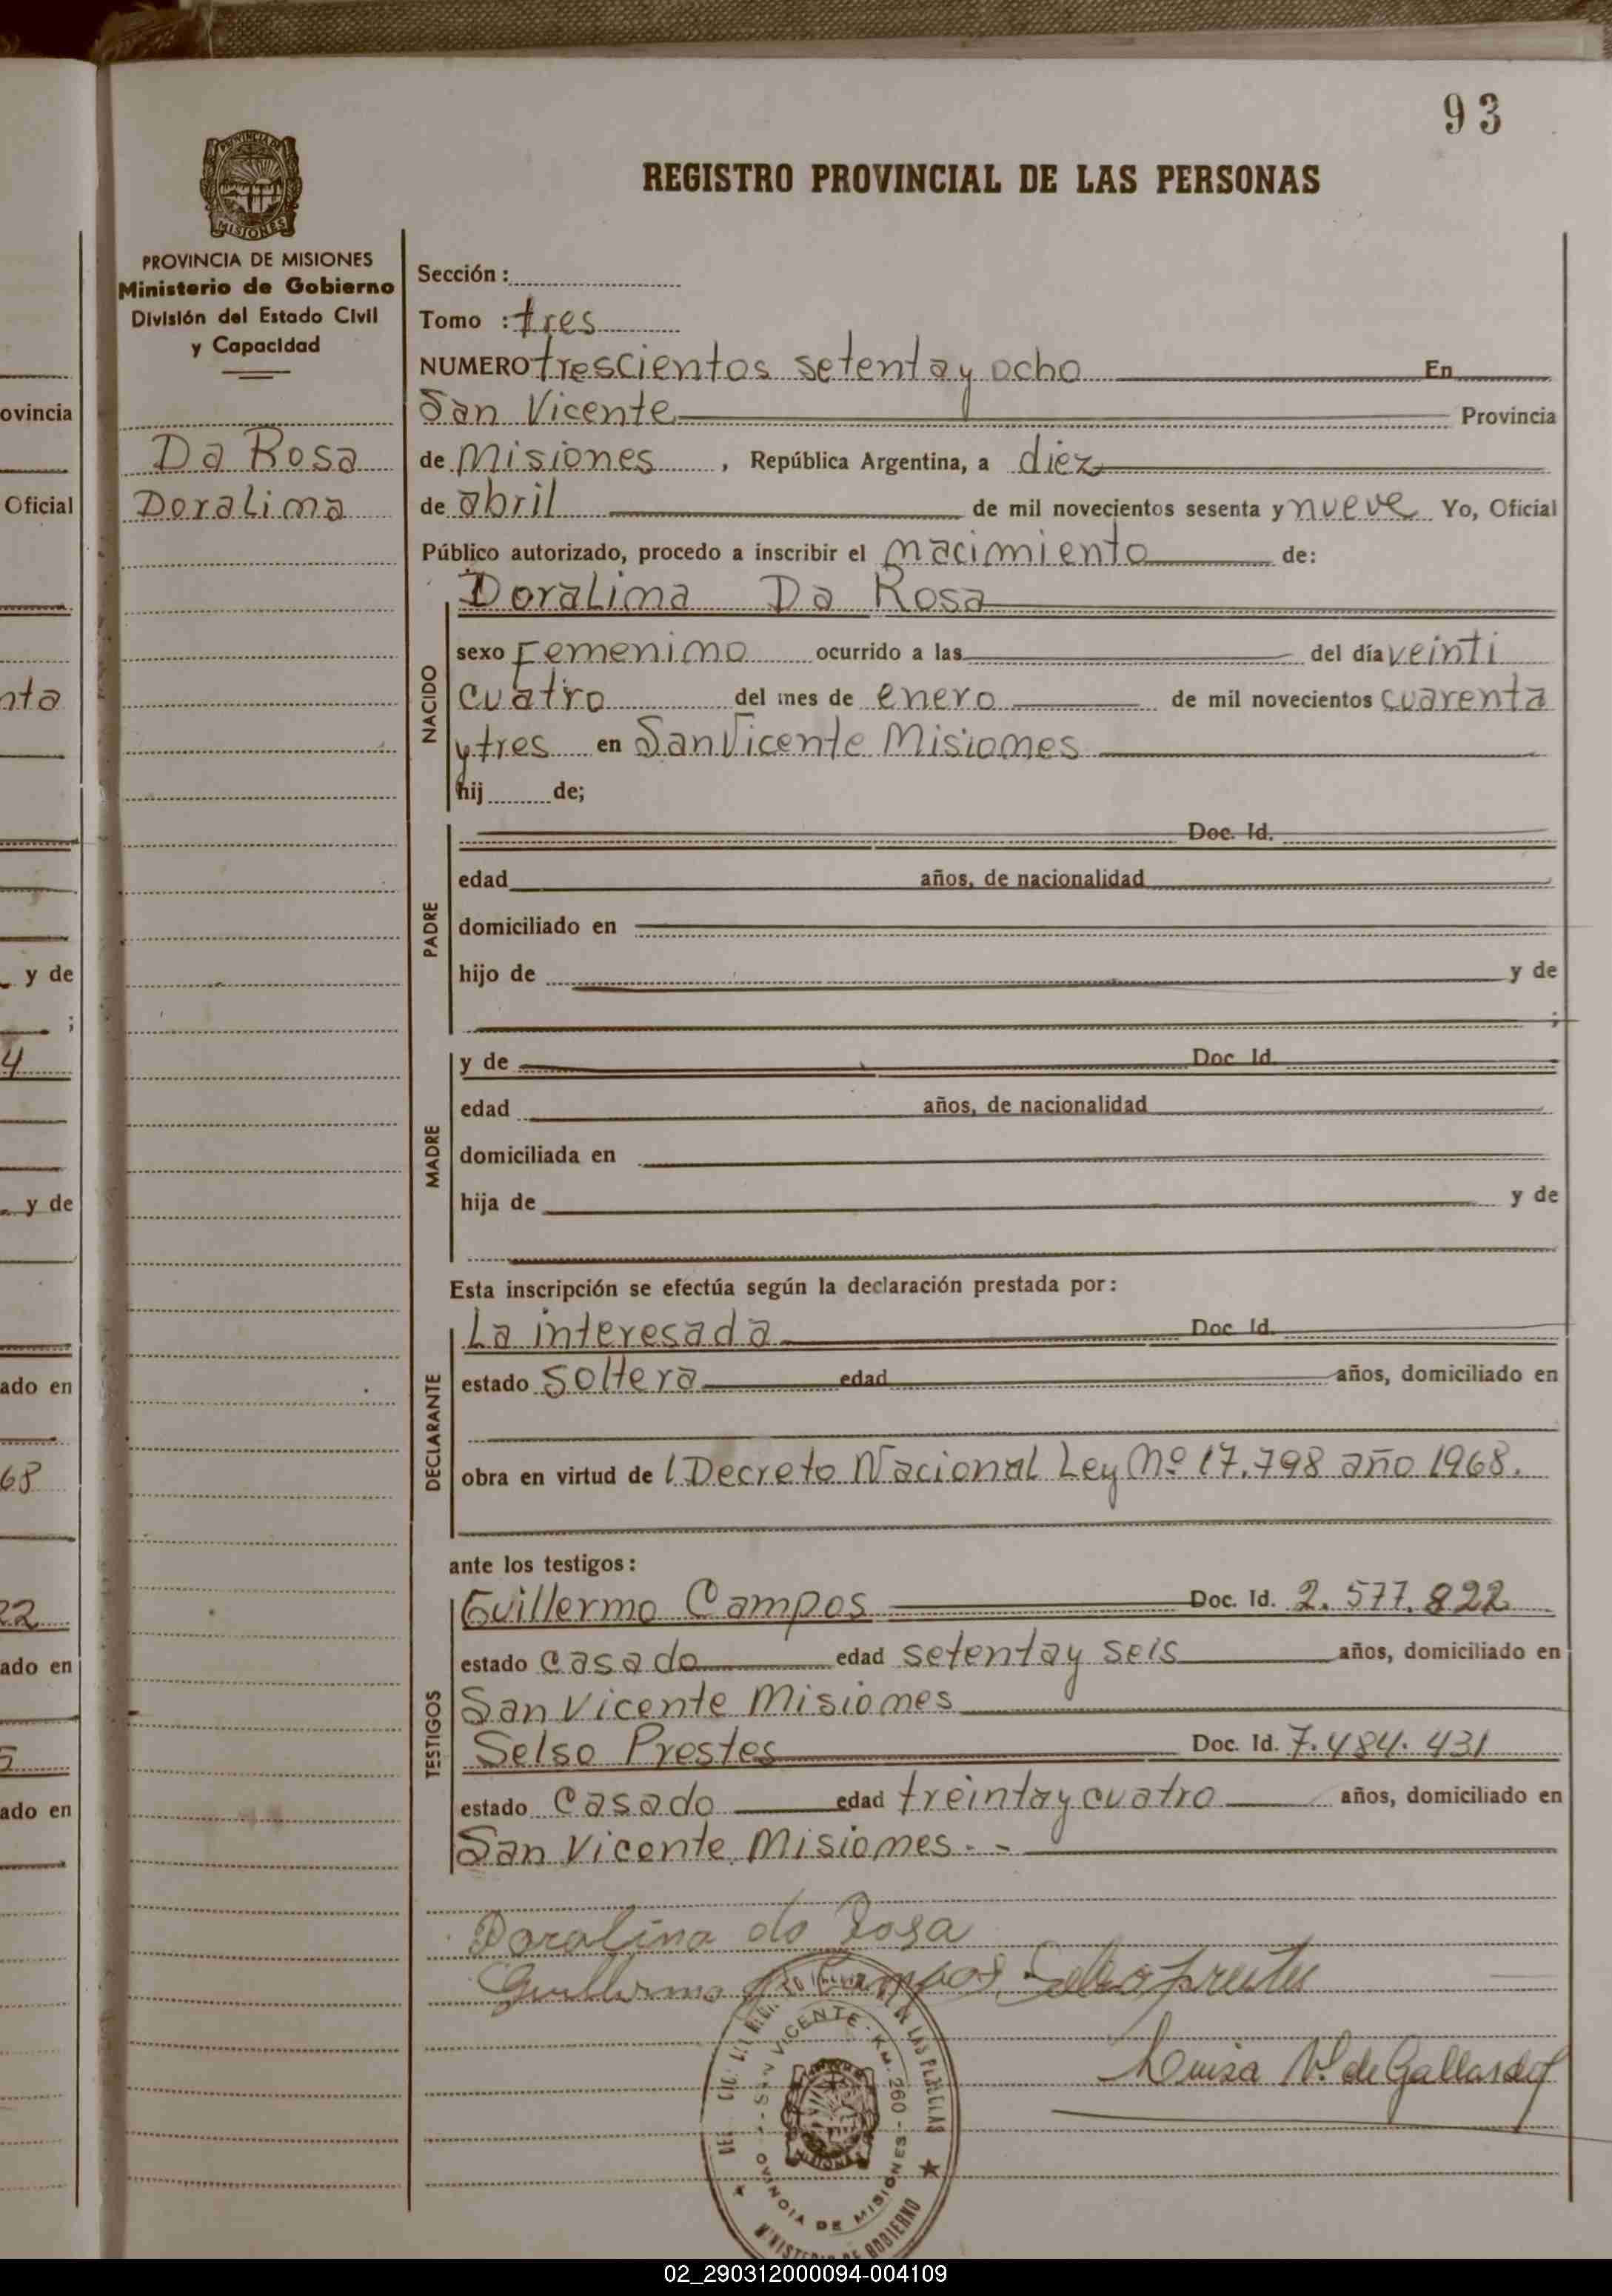 93
REGISTRO PROVINCIAL DE LAS PERSONAS
PROVINCIA DE MISIONES
Ministerio de Gobierno
División del Estado Civil
y Capacidad
Da Rosa
Doralima
Sección :
Tomo : tres
NUMERO trescientos setenta y ocho En
San Vicente Provincia
de Misiones , República Argentina, a diez
de abril de mil novecientos sesenta y nueve Yo, Oficial
Público autorizado, procedo a inscribir el nacimiento de:
Doralima Da Rosa
NACIDO
sexo Femenino ocurrido a las del día veinti
cuatro del mes de enero de mil novecientos cuarenta
y tres en San Vicente Misiones
hij de;
PADRE
Doc. Id.
edad años, de nacionalidad
domiciliado en
hijo de y de
;
MADRE
y de Doc. Id.
edad años, de nacionalidad
domiciliada en
hija de y de
Esta inscripción se efectúa según la declaración prestada por:
DECLARANTE
La interesada Doc. Id.
estado soltera edad años, domiciliado en
obra en virtud de l Decreto Nacional Ley Nº 17.798 año 1968.
ante los testigos:
TESTIGOS
Guillermo Campos Doc. Id. 2.577.822
estado casado edad setenta y seis años, domiciliado en
San Vicente Misiones
Selso Prestes Doc. Id. 7.484.431
estado casado edad treinta y cuatro años, domiciliado en
San Vicente Misiones.-
Doralina da Rosa
Guillermo Campos Selso prestes
Luisa V. de Gallardo
SAN VICENTE - KM. 260 -
DE LAS PERSONAS
PROVINCIA DE MISIONES
MINISTERIO DE GOBIERNO
ovincia
Oficial
nta
y de
;
4
y de
ado en
68
22
ado en
5
ado en
02_290312000094-004109